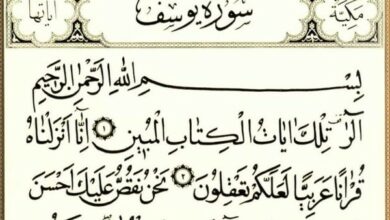 آياتها سورة يوسف مكية
بِسْمِ اللهِ الرَّحْمٰنِ الرَّحِيمِ
الر تِلْكَ اٰيَاتُ الْكِتَابِ الْمُبِينِ ١ اِنَّا اَنْزَلْنَاهُ
قُرْاٰنًا عَرَبِيًّا لَعَلَّكُمْ تَعْقِلُونَ ٢ نَحْنُ نَقُصُّ عَلَيْكَ اَحْسَنَ